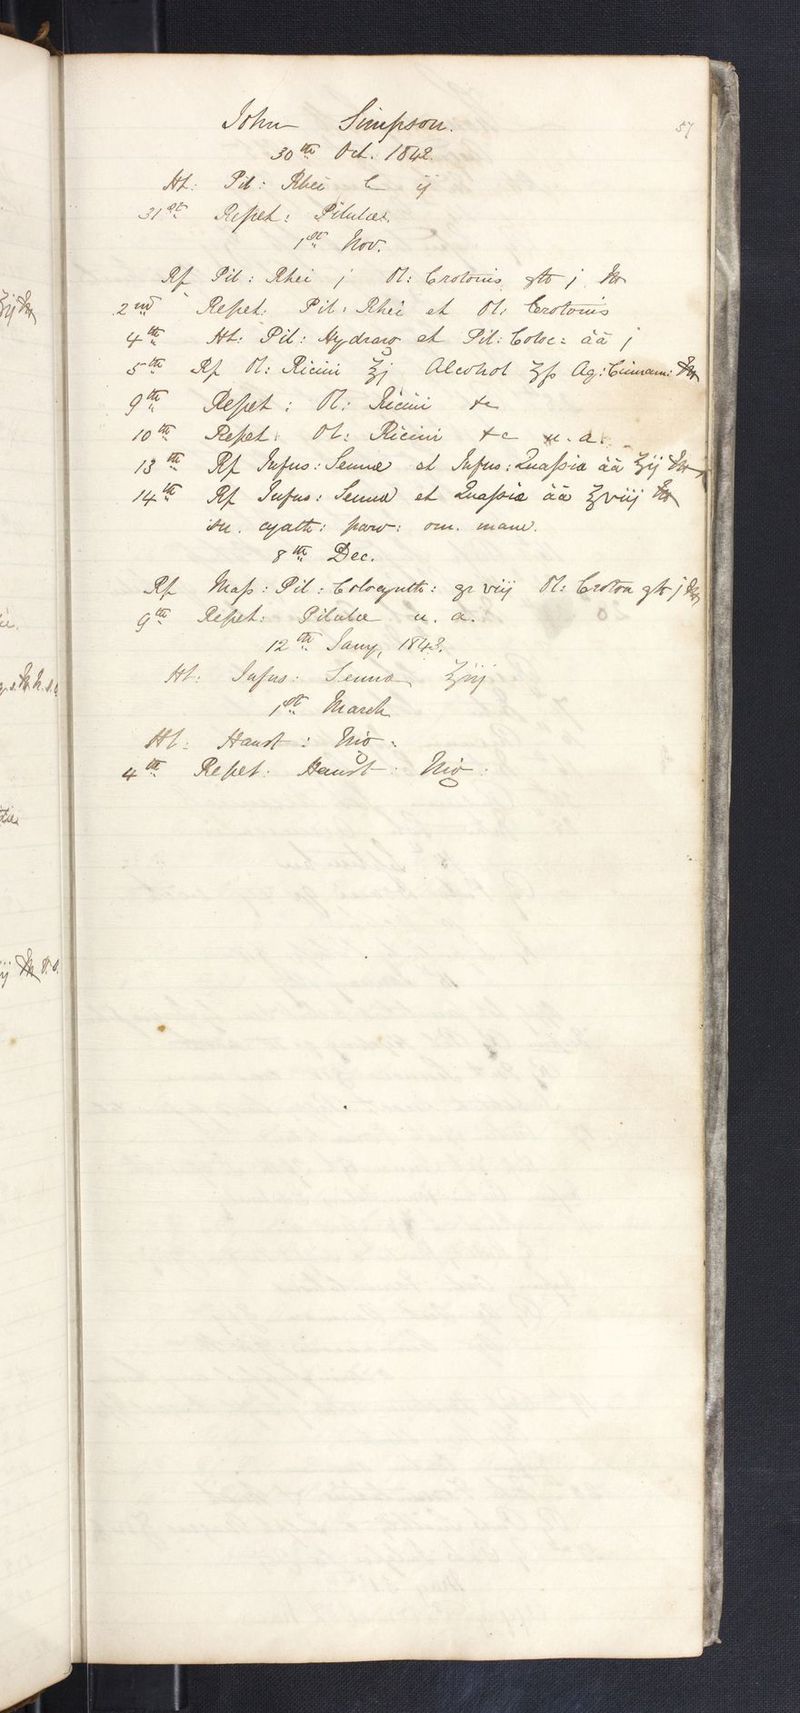 57
John Simpson.
30th Oct. 1842.
Ht: Pil: Rhei C ij
31st Repet: Pilulas.
1st Nov.
Rf Pil: Rhei j Ol: Crotonis gtt j
2nd Repet: Pil: Rhei et Ol: Crotonis
4th Ht: Pil: Hydrarg et Pil: Coloc: āā j
5th Rf Ol: Ricini ℥j Alcohol ʒſs Aq: Cinnam:
9th Repet: Ol: Ricini &c
10th Repet: Ol: Ricini &c u. a.
13th Rf Infus: Sennæ et Infus: Quaſsia āā ℥ij
14th Rf Infus: Sennæ et Quaſsia āā ℥viij
cyath: parv: om. mane.
8th Dec.
Rf Maſs: Pil: Colocynth: gr viij Ol: Croton gtt j
9th Repet: Pilulæ u. a.
12th Jany, 1843.
Ht: Infus: Senna ℥iij
1st March
Ht: Haust: Nig:
4th Repet: Haust: Nig: